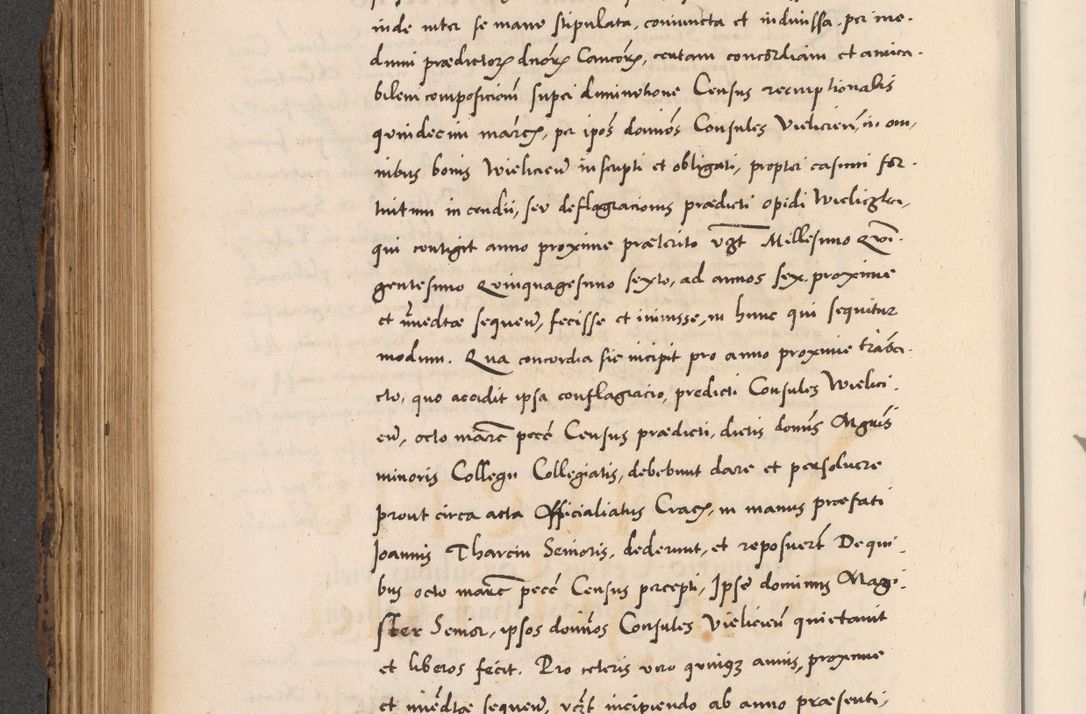 inde inter se manu stipulata, coniuncta et indiuissa, per me-
dium prædictorꝝ dnorꝝ Cancorꝝ, certam concordiam et amica-
bilem composiciem super diminutione Census reemptionalis
quindecim marcꝝ, per ipos dominos Consules Vielicien, in om-
nibus bonis Wielicien inscripti et obligati, propter casum for-
tuitum incendii, seu deflagracionis prædicti opidi Wieliczka,
qui contigit anno proxime præterito vꝫt Millesimo Qui-
gentesimo Quinquagesimo sexto, ad annos sex proxime
et imedtæ sequen, fecisse et iniuisse, in hunc qui sequitur
modum. Qua concordia sic incipit pro anno proxime transa-
cto, quo accidit ipsa conflagracio, predicti Consules Wielici-
en, octo marc pece Census prædicti, dictis domis Mgris
minoris Collegii Collegiatis, debebunt dare et persoluere
prout circa acta Officialiatus Cracꝫ, in manus præfati
Joannis Tharcin Senioris, dederunt, et reposuert De qui-
bus octo marc pece Census percepti, Ipse dominus Magi-
ster Senior, ipsos dominos Consules Vielicien quietauit
et liberos fecit. Pro ceteris vero quinqꝫ annis, proxime
et imedtæ sequen, vꝫt incipiendo ab anno præsenti,